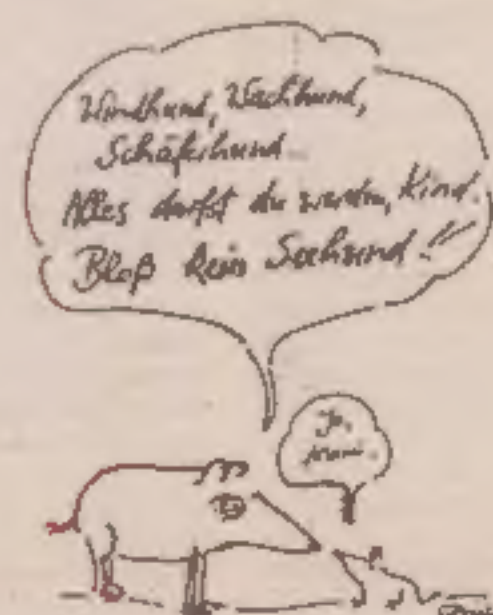 Windhund, Wachhund,
Schäferhund.
Alles darfst du werden, Kind.
Bloß kein Seehund!!
Ja,
Mami.